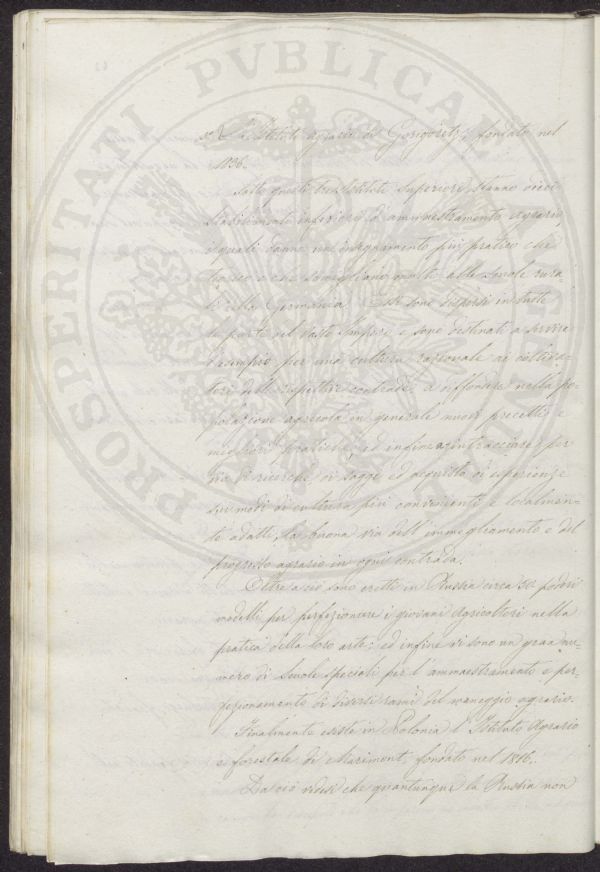 3.º L'Istituto agrario di Gorigoretzk, fondato nel
1836.
Sotto questi tre Istituti superiori stanno dieci
stabilimenti inferiori di ammaestramento agrario,
i quali danno un insegnamento più pratico che
teorico e che somigliano molto alle scuole rura-
li della Germania. Essi sono disposti in tutte
le parti nel vasto Impero, e sono destinati a servire
d'esempio per una cultura razionale ai coltiva-
tori delle rispettive contrade a diffondere nella po-
polazione agricola in generale nuovi precetti e
migliori pratiche, ed infine a rintracciare per
via di ricerche, di saggi ed acquisto di esperienze
sui modi di cultura più convenienti e localmen-
te adatti, la buona via dell'immegliamento e del
progresso agrario in ogni contrada.
Oltre a ciò sono erette in Russia circa 50 poderi
modelli per perfezionare i giovani Agricoltori nella
pratica della loro arte; ed infine vi sono un gran nu-
mero di Scuole speciali per l'ammaestramento e per-
fezionamento di diversi rami del maneggio agrario.
Finalmente esiste in Polonia l'Istituto Agrario
e forestale di Marimont, fondato nel 1816.
Da ciò vedesi che quantunque la Russia non
PROSPERITATI PVBLICAE